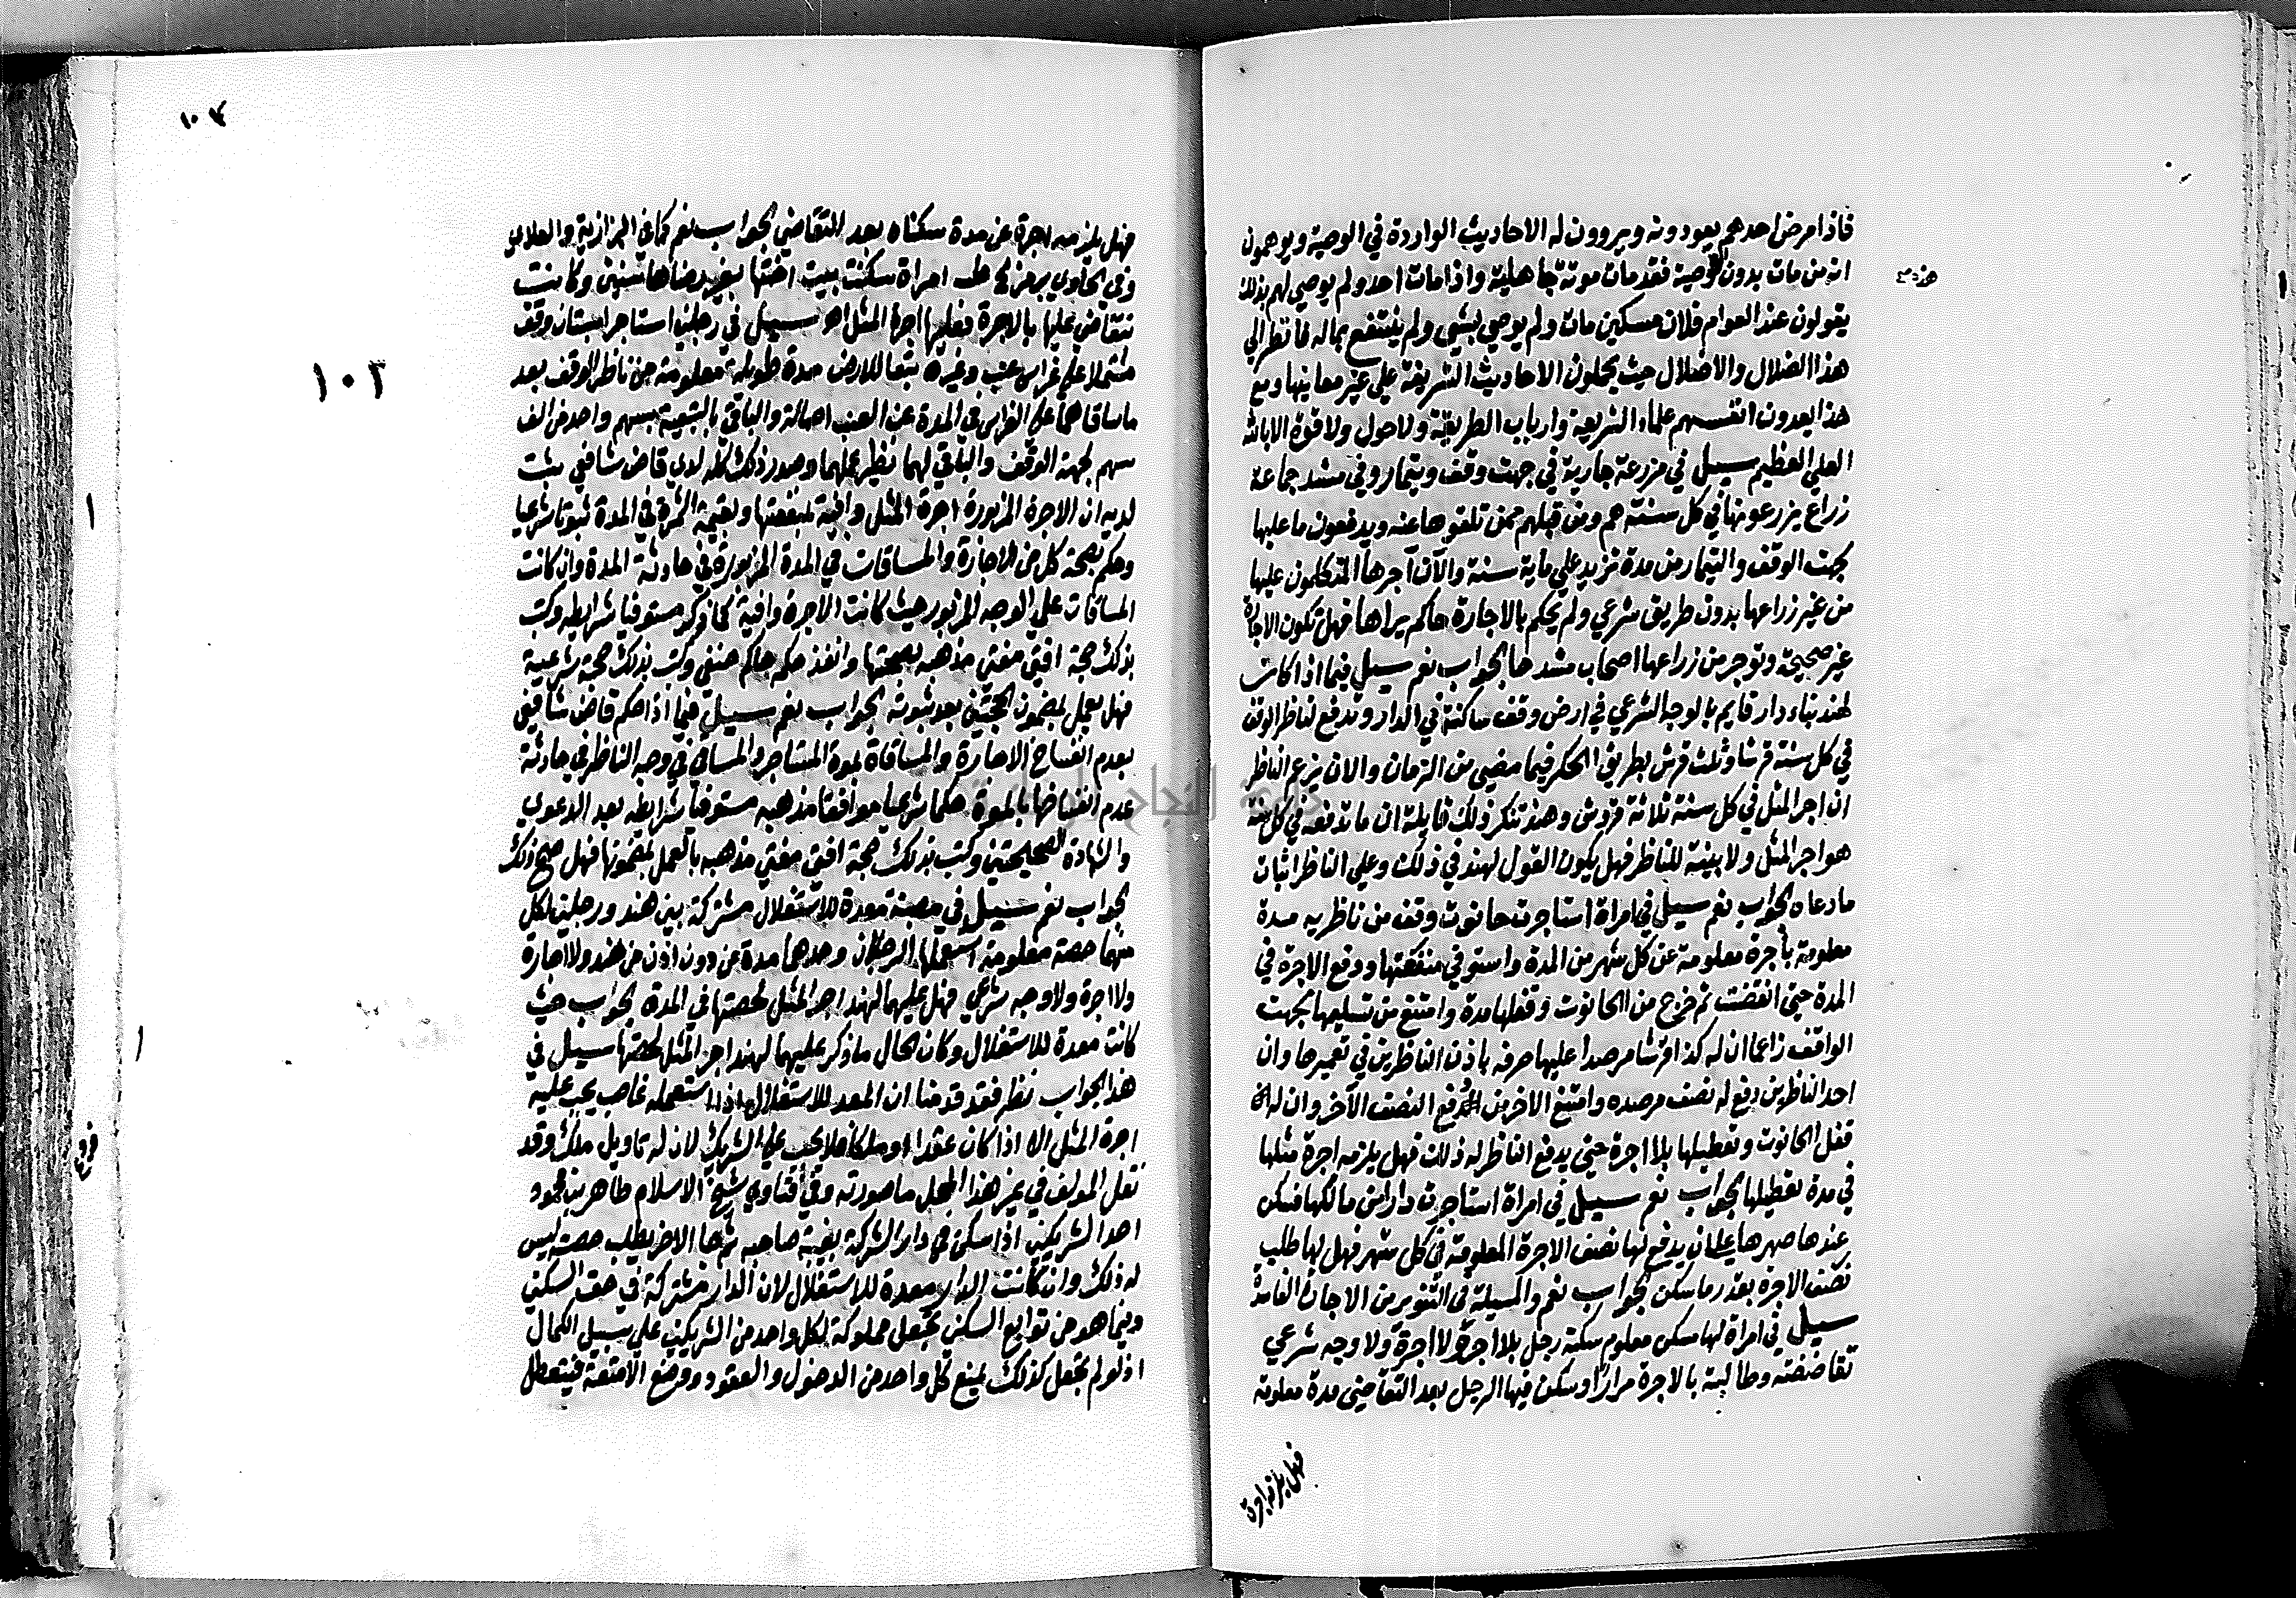 فاذا مرض احدهم يعودونه ويروون له الاحاديث الواردة في الوصية ويوهمون
انه من مات بدون الوصية فقد مات موتة جاهلية واذا مات احد ولم يوصي لهم بذلك
يقولون عند العوام فلان مسكين مات ولم يوصي بشي ولم ينتفع بماله فانظر الي
هذا الضلال والاضلال حيث يحملون الاحاديث الشريفة علي غير معاينها ومع
هذا يعدون انفسهم علماء الشريعة وارباب الطريقة ولاحول ولا قوة الا بالله
العلي العظيم سيل في مزرعة جارية في جهت وقف وتيمار وفي مشد جماعة
زراع يزرعونها في كل سنة هم ومن قبلهم ممن تلقوها عنه ويدفعون ما عليها
لجهت الوقف والتيمار من مدة تزيد علي ماية سنة والآن آجرها المتكلمون عليها
من غير زراعها بدون طريق شرعي ولم يحكم بالاجارة حاكم يراها فهل تكون الاجارة
غير صحيحة وتوجر من زراعها اصحاب مشدها الجواب نعم سيل فيما اذا كانت
لهند بناء دار قايم بالوجه الشرعي في ارض وقف ساكنة في الدار وتدفع لناظر الوقف
في كل سنة قرشا وثلث قرش بطريق الحكر فيما مضي من الزمان والان يزعم الناظر
ان اجر المثل في كل سنة ثلاثة قروش وهند تنكر ذلك قايلة ان ما تدفعه في كل سنة
هو اجر المثل ولا بينة للناظر فهل يكون القول لهند في ذلك وعلي الناظر اثبات
ما دعاه الجواب نعم سيل في امراة استاجرت حانوت وقف من ناظريه مدة
معلومة باجرة معلومة عن كل شهر من المدة واستوفي منفعتها ودفع الاجرة في
المدة حتي انقضت ثم خرج من الحانوت وقفلها مدة وامتنع من تسليمها لجهت
الواقف زاعما ان له كذا قرشا مرصدا عليها صرفه باذن الناظرين في تعميرها وان
احد الناظرين دفع له نصف مرصده وامتنع الاخر من دفع النصف الآخر وان له
قفل الحانوت وتعطيلها بلا اجرة حتي يدفع الناظر له ذلك فهل يلزمه اجرة مثلها
في مدة تعطيلها الجواب نعم سيل في امراة استاجرت دارا من مالكها فسكن
عندها صهرها علي ان يدفع لها نصف الاجرة المعلومة في كل شهر فهل لها طلب
نصف الاجرة بقدر ما سكن الجواب نعم والمسيلة في التنوير من الاجارة الفاسدة
سيل في امراة لها مسكن معلوم سكنه رجل بلا اجرة ولا اجرة ولا وجه شرعي
تقاضته وطالبته بالاجرة مرارا وسكن فيها الرجل بعد التقاضي مدة معلومة
فهل يلزمه اجرة
١٠٤
١٠٣
فهل يلزمه اجرة عن مدة سكناه بعد التقاضي الجواب نعم كما في البزازية والعلائي
وفي الحاوي برمز امراة سكنت بيت اختها بغير رضاها سنين وكانت
تتقاضي عليها بالاجرة فعليها اجر المثل اه سيل في رجلين استاجرا بستان وقف
مشتملا علي غراس عنب وغيره تبعا للارض مدة طويلة معلومة من ناظر الوقف بعد
ما ساقاهما علي الغراس في المدة عن العنب اصالة والباقي بالتبعية بسهم واحد من الف
سهم لجهة الوقف والباقي لهما نظير عملهما وصدر ذلك كله لدي قاض شافعي ثبت
لديه ان الاجرة المزبورة اجرة المثل وافية بمنفعتها وبقيمة الثمرة في المدة ثبوتا شرعيا
وحكم بصحة كل من الاجارة والمساقات في المدة المزبورة في حادثة المدة وان كانت
المساقات علي الوجه المزبور حيث كانت الاجرة وافية كما ذكر مستوفيا شرايطه وكتب
بذلك حجة افتي مفتي مذهبه بصحتها وانفذ حكمه حاكم حنفي وكتب بذلك حجة شرعية
فهل يعمل بمضمون الحجتين بعد ثبوته الجواب نعم سيل فيما اذا حكم قاض شافعي
بعدم انفساخ الاجارة والمساقاة بموت المستاجر والمساقي في وجه الناظر في حادثة
عدم انفساخها بالموت حكما شرعيا موافقا مذهبه مستوفيا شرايطه بعد الدعوي
والشهادة الصحيحتين وكتب بذلك حجة افتي مفتي مذهبه بالعمل بمضمونها فهل صح ذلك
الجواب نعم سيل في مصبنة معدة للاستغلال مشتركة بين هند ورجلين لكل
منهما حصة معلومة استعملها الرجلان وحدهما مدة عن دون اذن من هند ولا اجارة
ولا اجرة ولا وجه شرعي فهل عليهما لهند اجر المثل لحصتها في المدة الجواب حيث
كانت معدة للاستغلال وكان الحال ما ذكر عليهما لهند اجر المثل لحصتها سيل في
هذا الجواب نظر فقد قدمنا ان المعد للاستغلال اذا استعمله غاصب يجب عليه
اجرة المثل الا اذا كان عقدا او ملكا فلا يجب علي الشريك لان له تاويل ملك وقد
نقل المولف في غير هذا المحل ما صورته وفي فتاوي شيخ الاسلام طاهر بن محمود
احد الشريكين اذا سكن في دار الشركة بغيبة صاحبه ثم جا الاخر يطلب حصته ليس
له ذلك وان كانت الدار معدة للاستغلال لان الدار مشتركة في حق السكني
وفيما هو من توابع السكني تجعل مملوكة لكل واحد من الشريكين علي سبيل الكمال
اذ لو لم تجعل كذلك لمنع كل واحد من الدخول والعقود ووضع الامتعة فيتعطل